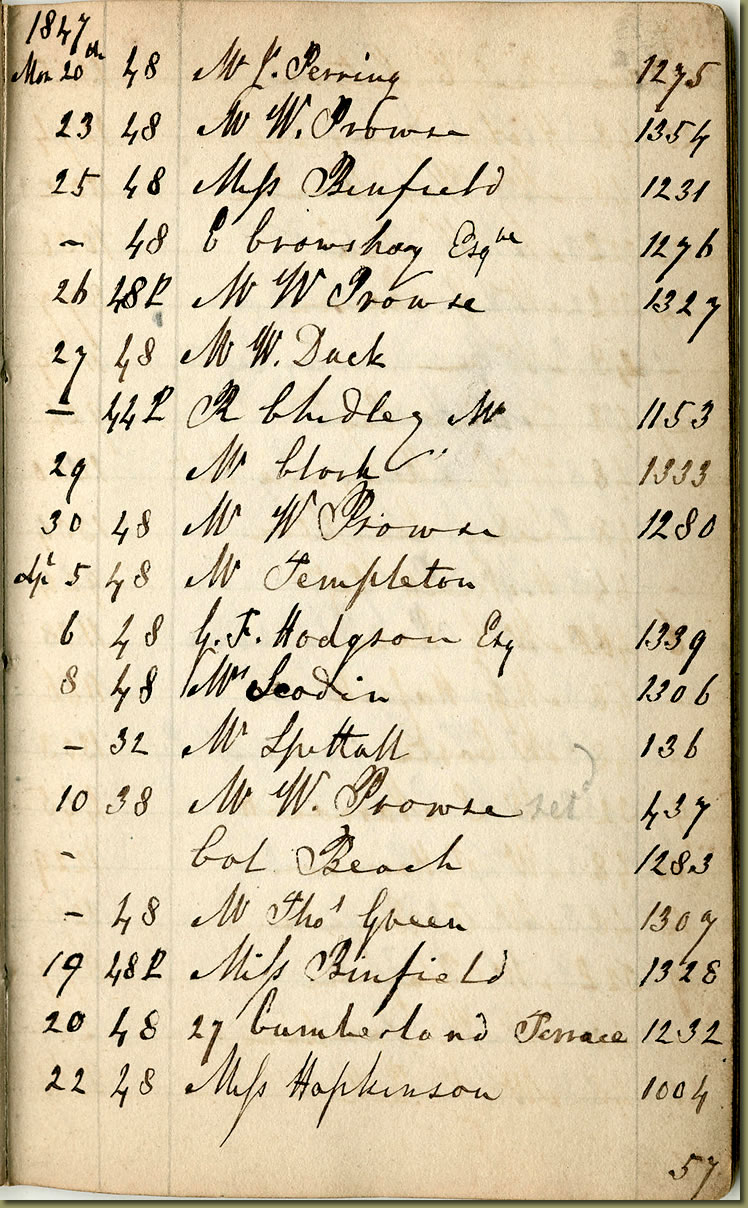 1847
Mar 20th 48 Mr J. Perring 1275
23 48 Mr W. Prowse 1354
25 48 Miss Binfield 1231
– 48 C Crowshay Esqre 1276
26 48P Mr W Prowse 1327
27 48 Mr W. Duck
– 44P R Chidley Mr 1153
29 Mr Clark 1333
30 48 Mr W Prowse 1280
Apl 5 48 Mr Templeton
6 48 G. F. Hodgson Esq 1339
8 48 Mrs 1306
– 32 Mr Spottall 136
10 38 Mr W. Prowse set 437
– Col Beach 1283
– 48 Mr Thos Green 1307
19 48P Miss Binfield 1328
20 48 27 Cumberland Terrace 1232
22 48 Miss Hopkinson 1004
57